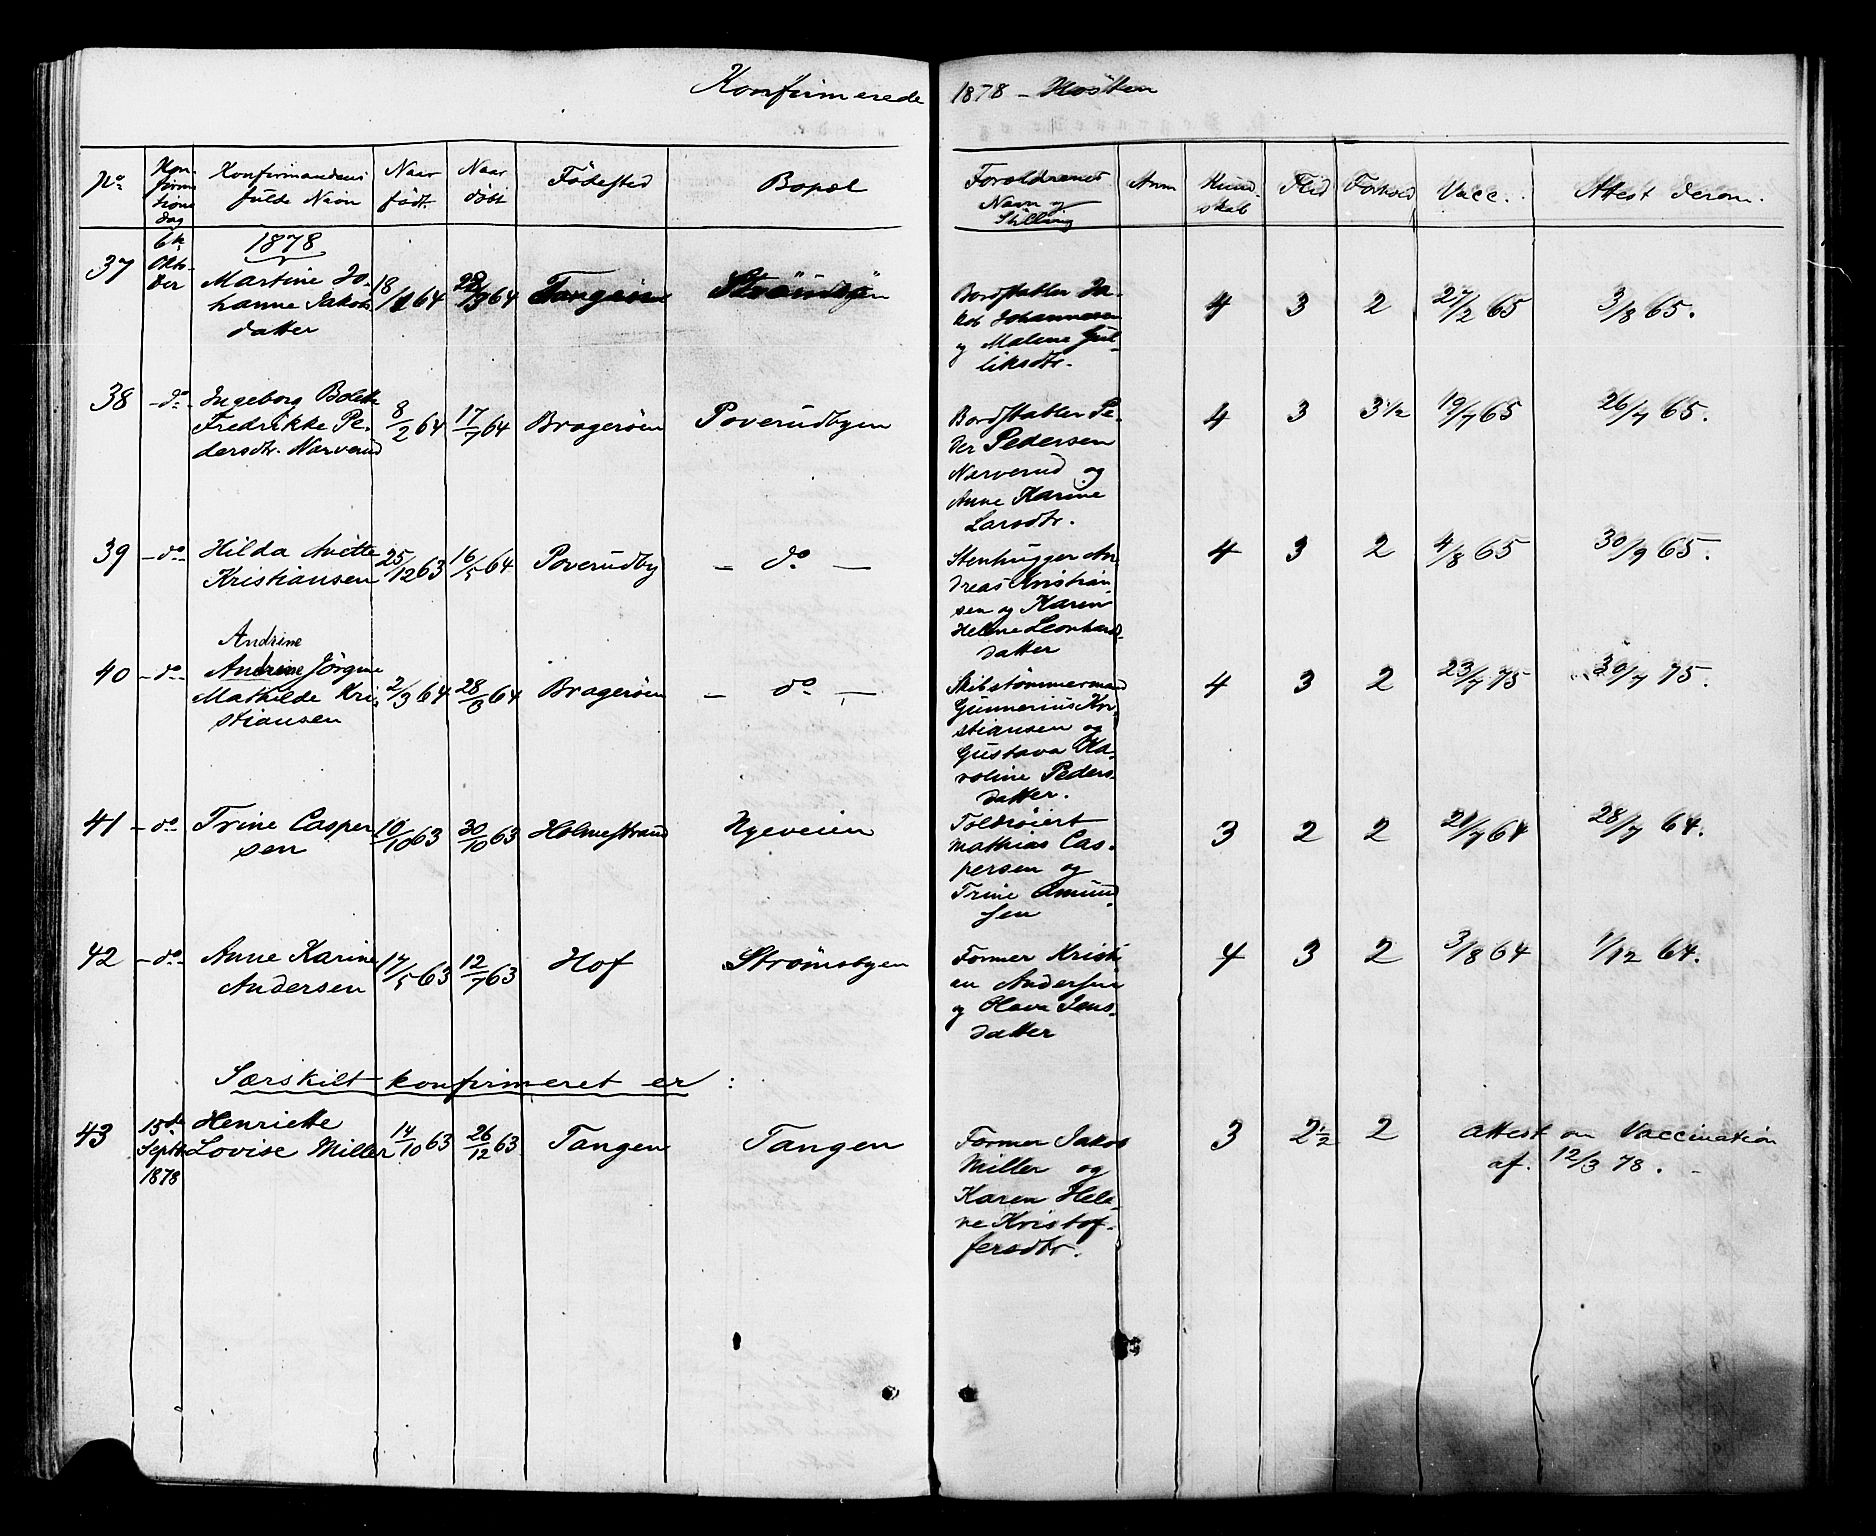 Konfirmerede 1878 - Hösten
No.
Kon-
firma
tions
dag
Konfirmandens
fulde Navn
Naar
födt.
Naar
döbt
Födested
Bopæl
Forældrenes
Navn og
Stilling
Anm
Kund-
skab
Flid
Forhold
Vacc.
Attest derom.
37
6te
Okto-
ber
1878
Martine Jo-
hanne Jakobs
datter
18/1 64
28/3 64
Tangen
Strömsbyen
Bordstabler Ja-
kob Johannesen
og Malene Gul-
liksdtr.
4 3 2 27/2 65 3/8 65.
38 -do- Ingeborg Bolette
Fredrikke Pe-
dersdtr. Narverud
8/2 64 17/7 64 Bragerøen Poverudbyen
Bordstabler Pe-
der Pedersen
Narverud og
Anne Karine
Larsdtr.
4 3 3 1/2 19/7 65 26/7 65.
39 -do- Hilda Anette
Kristiansen
25/12 63 16/5 64 Poverudby - do -
Stenhugger An
dreas Kristian
sen og Karen
Helene Leonhards-
datter
4 3 2 4/8 65 30/9 65.
40 -do-
Andrine
Andrine Jörgine
Mathilde Kri-
stiansen
2/3 64 28/3 64 Bragerøen - do -
Skibstømmermand
Gunnerius Kri-
stiansen og
Gustava Ka-
roline Peders-
datter.
4 3 2 23/7 75 30/7 75.
41 -do- Trine Casper
sen
10/10 63 30/10 63 Holmestrand Nyeveien
Toldröiert
Mathias Cas-
persen og
Trine Amund
sen
3 2 2 21/7 64 28/7 64.
42 -do- Anne Karine
Andersen
17/5 63 12/7 63 Hof Strømsbyen
Former Kristi
an Andersen
og Olava Jens-
datter
4 3 2 3/8 64 1/12 64.
Særskilt konfirmeret er :
43 15de
Septb
1878
Henriette
Lovise Miller
14/10 63 26/12 63 Tangen Tangen
Former Jakob
Miller og
Karen Hele
ne Kristof-
fersdtr.
3 2 1/2 2 Attest om Vaccination
af. 12/3 78.